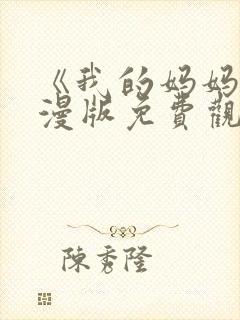 《我的妈妈
漫版免費觀
陳秀隆